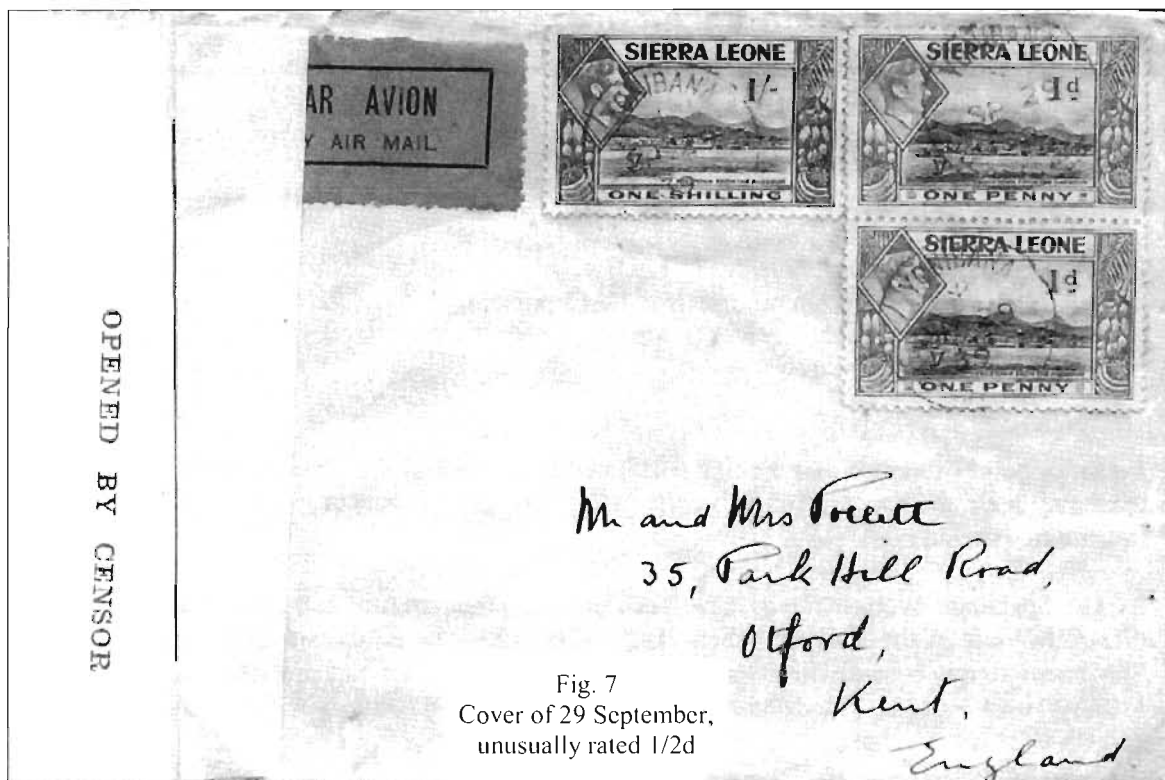 OPENED BY CENSOR
AR AVION
Y AIR MAIL
SIERRA LEONE
1/-
ONE SHILLING
SIERRA LEONE
1d
ONE PENNY
SIERRA LEONE
1d
ONE PENNY
Mr and Mrs
35, Park Hill Road,
Otford,
Kent,
England
Fig. 7
Cover of 29 September,
unusually rated 1/2d